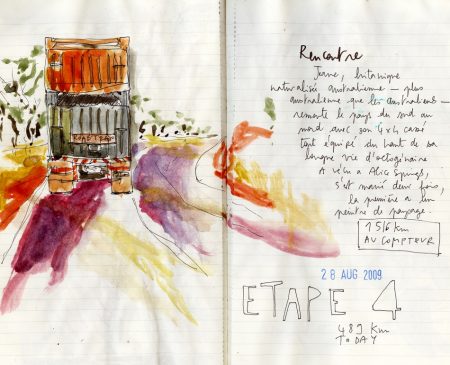 ROAD TRAIN
Rencontre
Jeane, britanique
naturalisée australienne – plus
australienne que les australiens –
remonte le pays du sud au
nord avec son 4x4 cassé
tout équipé du haut de sa
longue vie d'octogénaire
A vécu a Alice Springs,
s'est marié deux fois,
la première a un
peintre de paysage.
1516 km
AU COMPTEUR
28 AUG 2009
ETAPE 4
483 km
TODAY